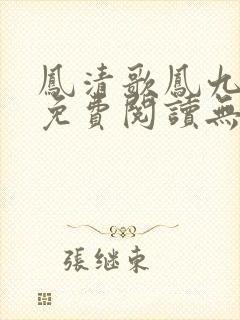 鳳清歌鳳九
免費閱讀無
張继東